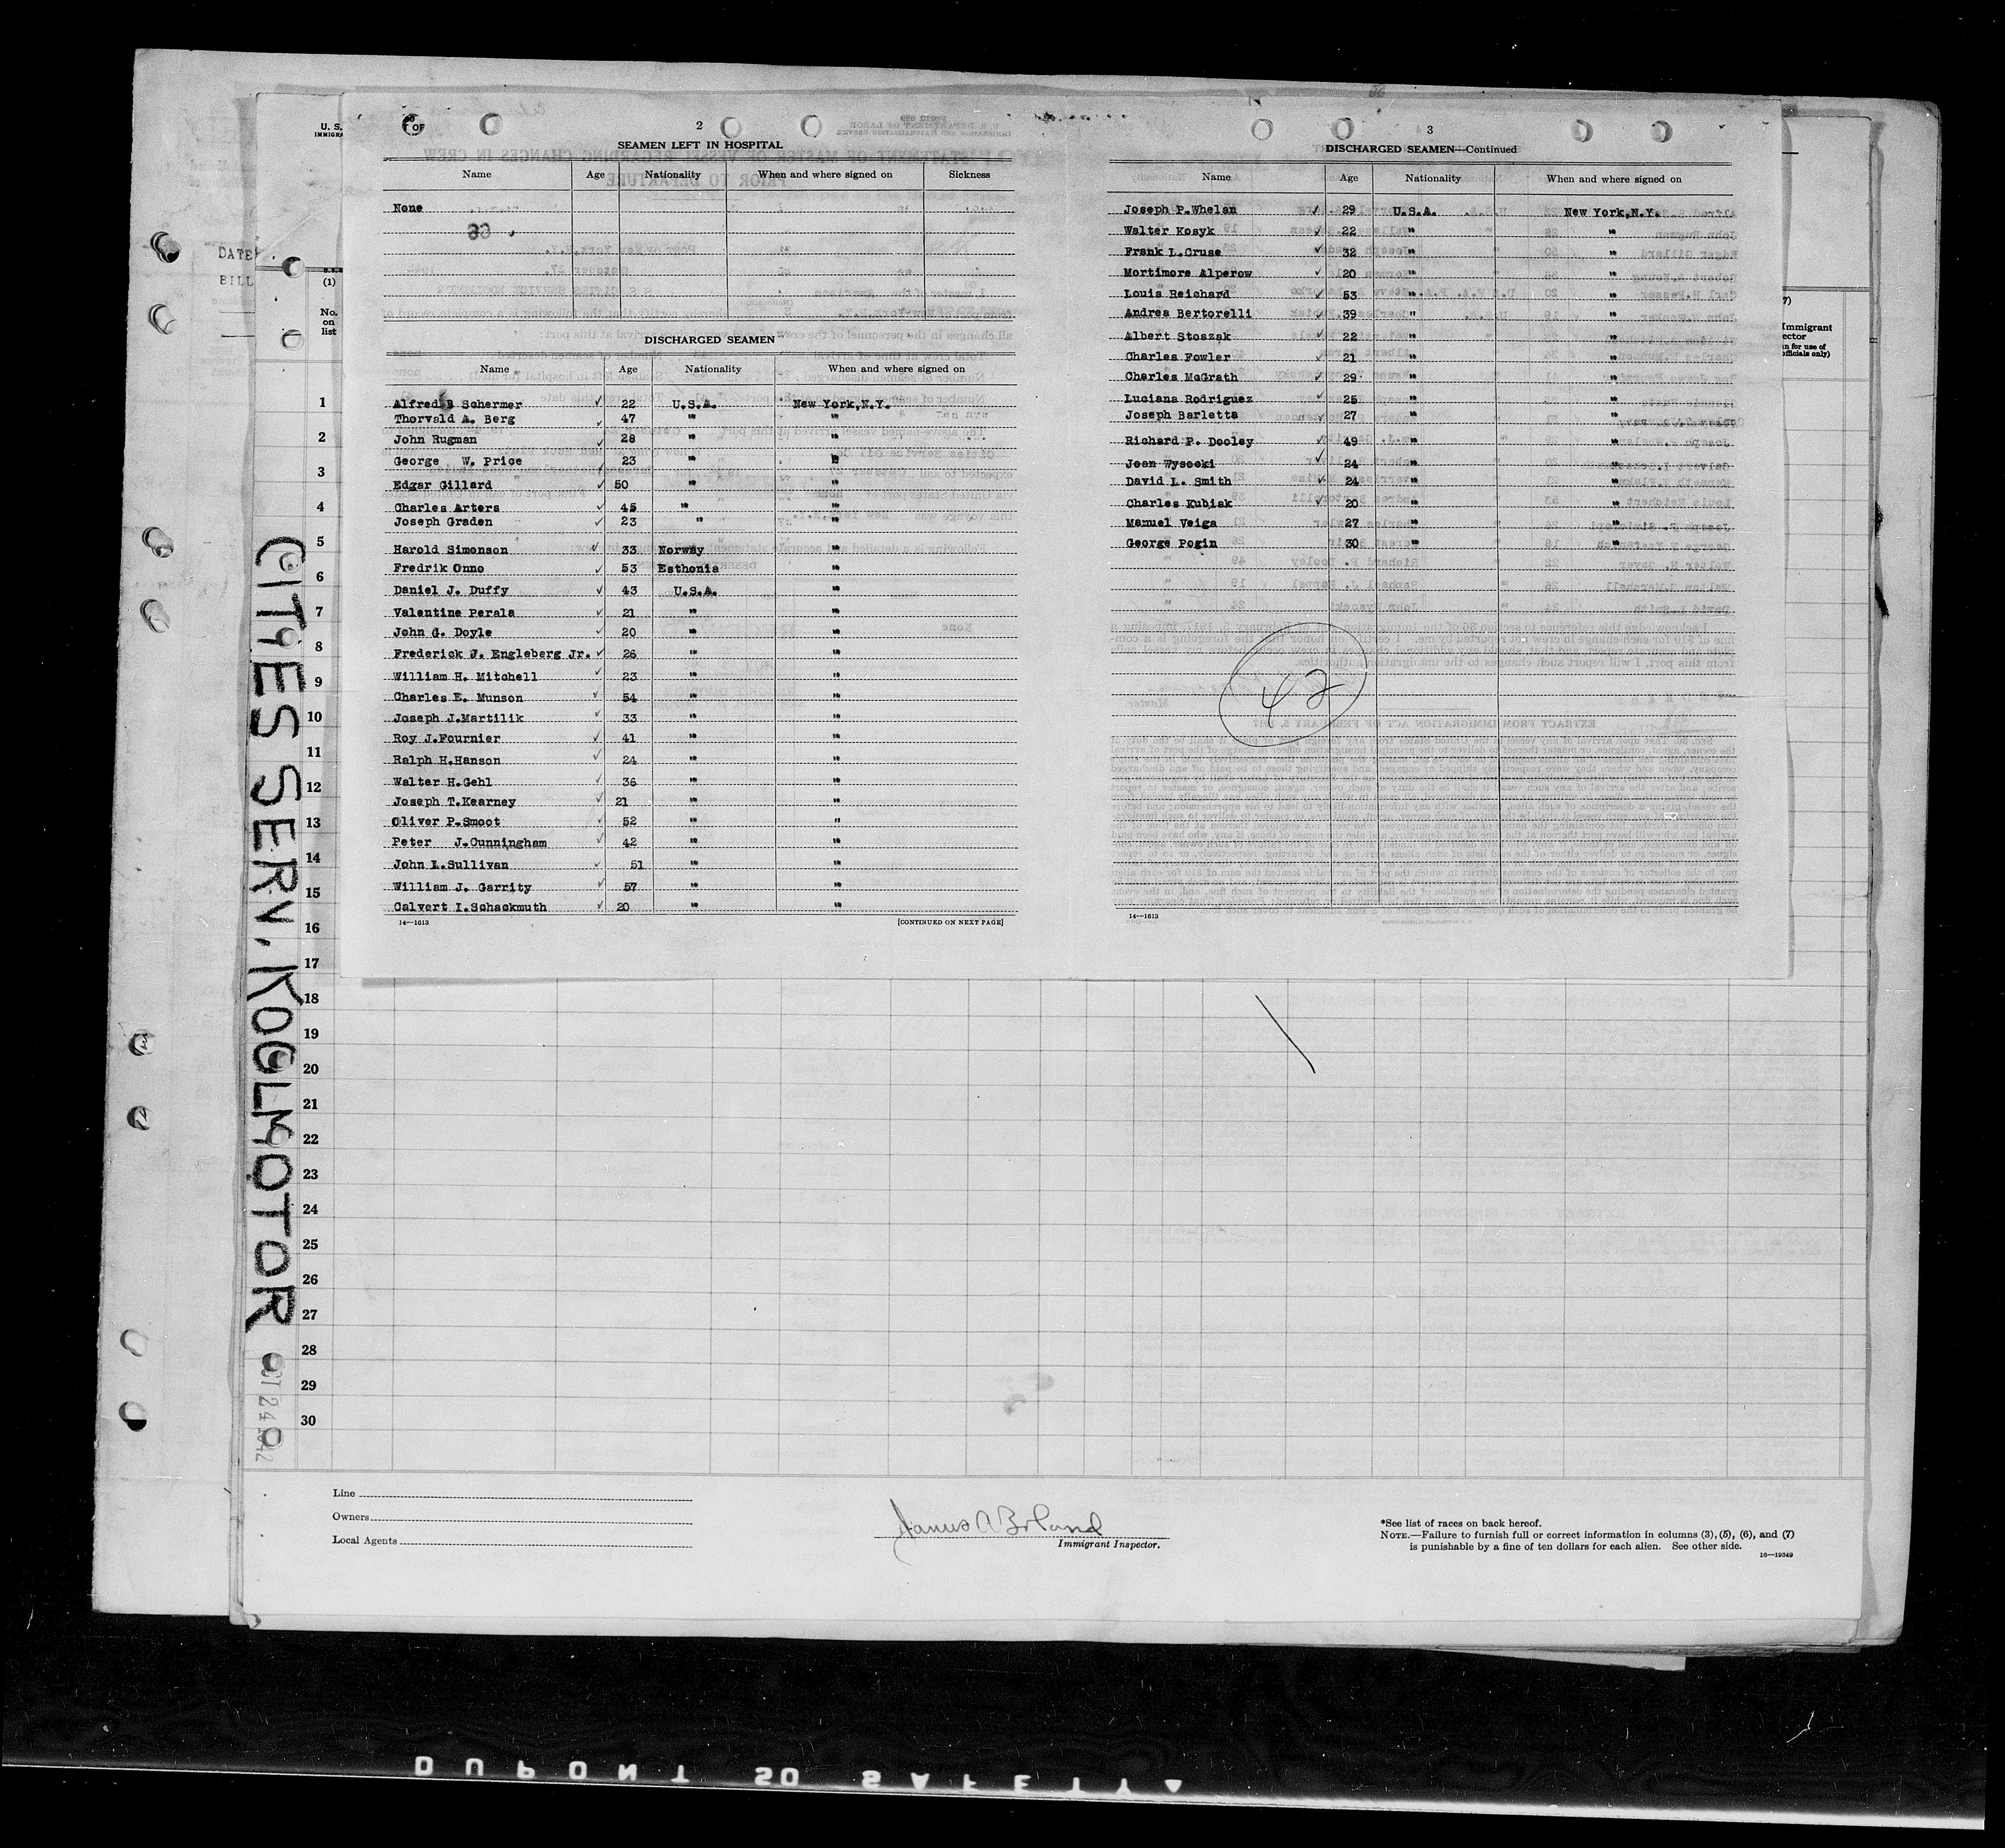 2
SEAMEN LEFT IN HOSPITAL
Name Age Nationality When and where signed on Sickness
None
DISCHARGED SEAMEN
Name Age Nationality When and where signed on
Alfred B Schermer ✓ 22 U.S.A. New York,N.Y.
Thorvald A. Berg ✓ 47 " "
John Rugman ✓ 28 " "
George W. Price 23 " "
Edgar Gillard ✓ 50 " "
Charles Arters ✓ 45 " "
Joseph Graden ✓ 23 " "
Harold Simonson ✓ 33 Norway "
Fredrik Onno ✓ 53 Esthonia "
Daniel J. Duffy ✓ 43 U.S.A. "
Valentine Perala ✓ 21 " "
John G. Doyle ✓ 20 " "
Frederick J. Engleberg Jr. ✓ 26 " "
William H. Mitchell ✓ 23 " "
Charles E. Munson ✓ 54 " "
Joseph J.Martilik ✓ 33 " "
Roy J.Fournier ✓ 41 " "
Ralph H.Hanson ✓ 24 " "
Walter H.Gehl ✓ 36 " "
Joseph T.Kearney ✓ 21 " "
Oliver P.Smoot ✓ 52 " "
Peter J.Cunningham ✓ 42 " "
John L.Sullivan ✓ 51 " "
William J. Garrity ✓ 57 " "
Calvert I.Schackmuth ✓ 20 " "
14—1613 [CONTINUED ON NEXT PAGE]
3
DISCHARGED SEAMEN—Continued
Name Age Nationality When and where signed on
Joseph P.Whelan ✓ 29 U.S.A. New York,N.Y.
Walter Kosyk ✓ 22 " "
Frank L.Cruse ✓ 32 " "
Mortimore Alperow ✓ 20 " "
Louis Reichard ✓ 53 " "
Andrea Bertorelli ✓ 39 " "
Albert Stoszak ✓ 22 " "
Charles Fowler ✓ 21 " "
Charles McGrath ✓ 29 " "
Luciana Rodriguez ✓ 25 " "
Joseph Barletta ✓ 27 " "
Richard P. Dooley ✓ 49 " "
Joan Wysocki ✓ 24 " "
David L. Smith ✓ 24 " "
Charles Kubiak ✓ 20 " "
Manuel Veiga 27 " "
George Pogin 30 " "
42
14—1613
U. S.
IMMIGRA
OF
DATE
BILL
(1)
No.
on
list
1
2
3
4
5
6
7
8
9
10
11
12
13
14
15
16
17
18
19
20
21
22
23
24
25
26
27
28
29
30
CITIES SERV. KOOLMOTOR
OCT 24 1942
7)
Immigrant
ector
n for use of
officials only)
Line
Owners
Local Agents
Immigrant Inspector.
*See list of races on back hereof.
NOTE.—Failure to furnish full or correct information in columns (3), (5), (6), and (7)
is punishable by a fine of ten dollars for each alien. See other side.
16—19349
DUPONT SO SAFETY